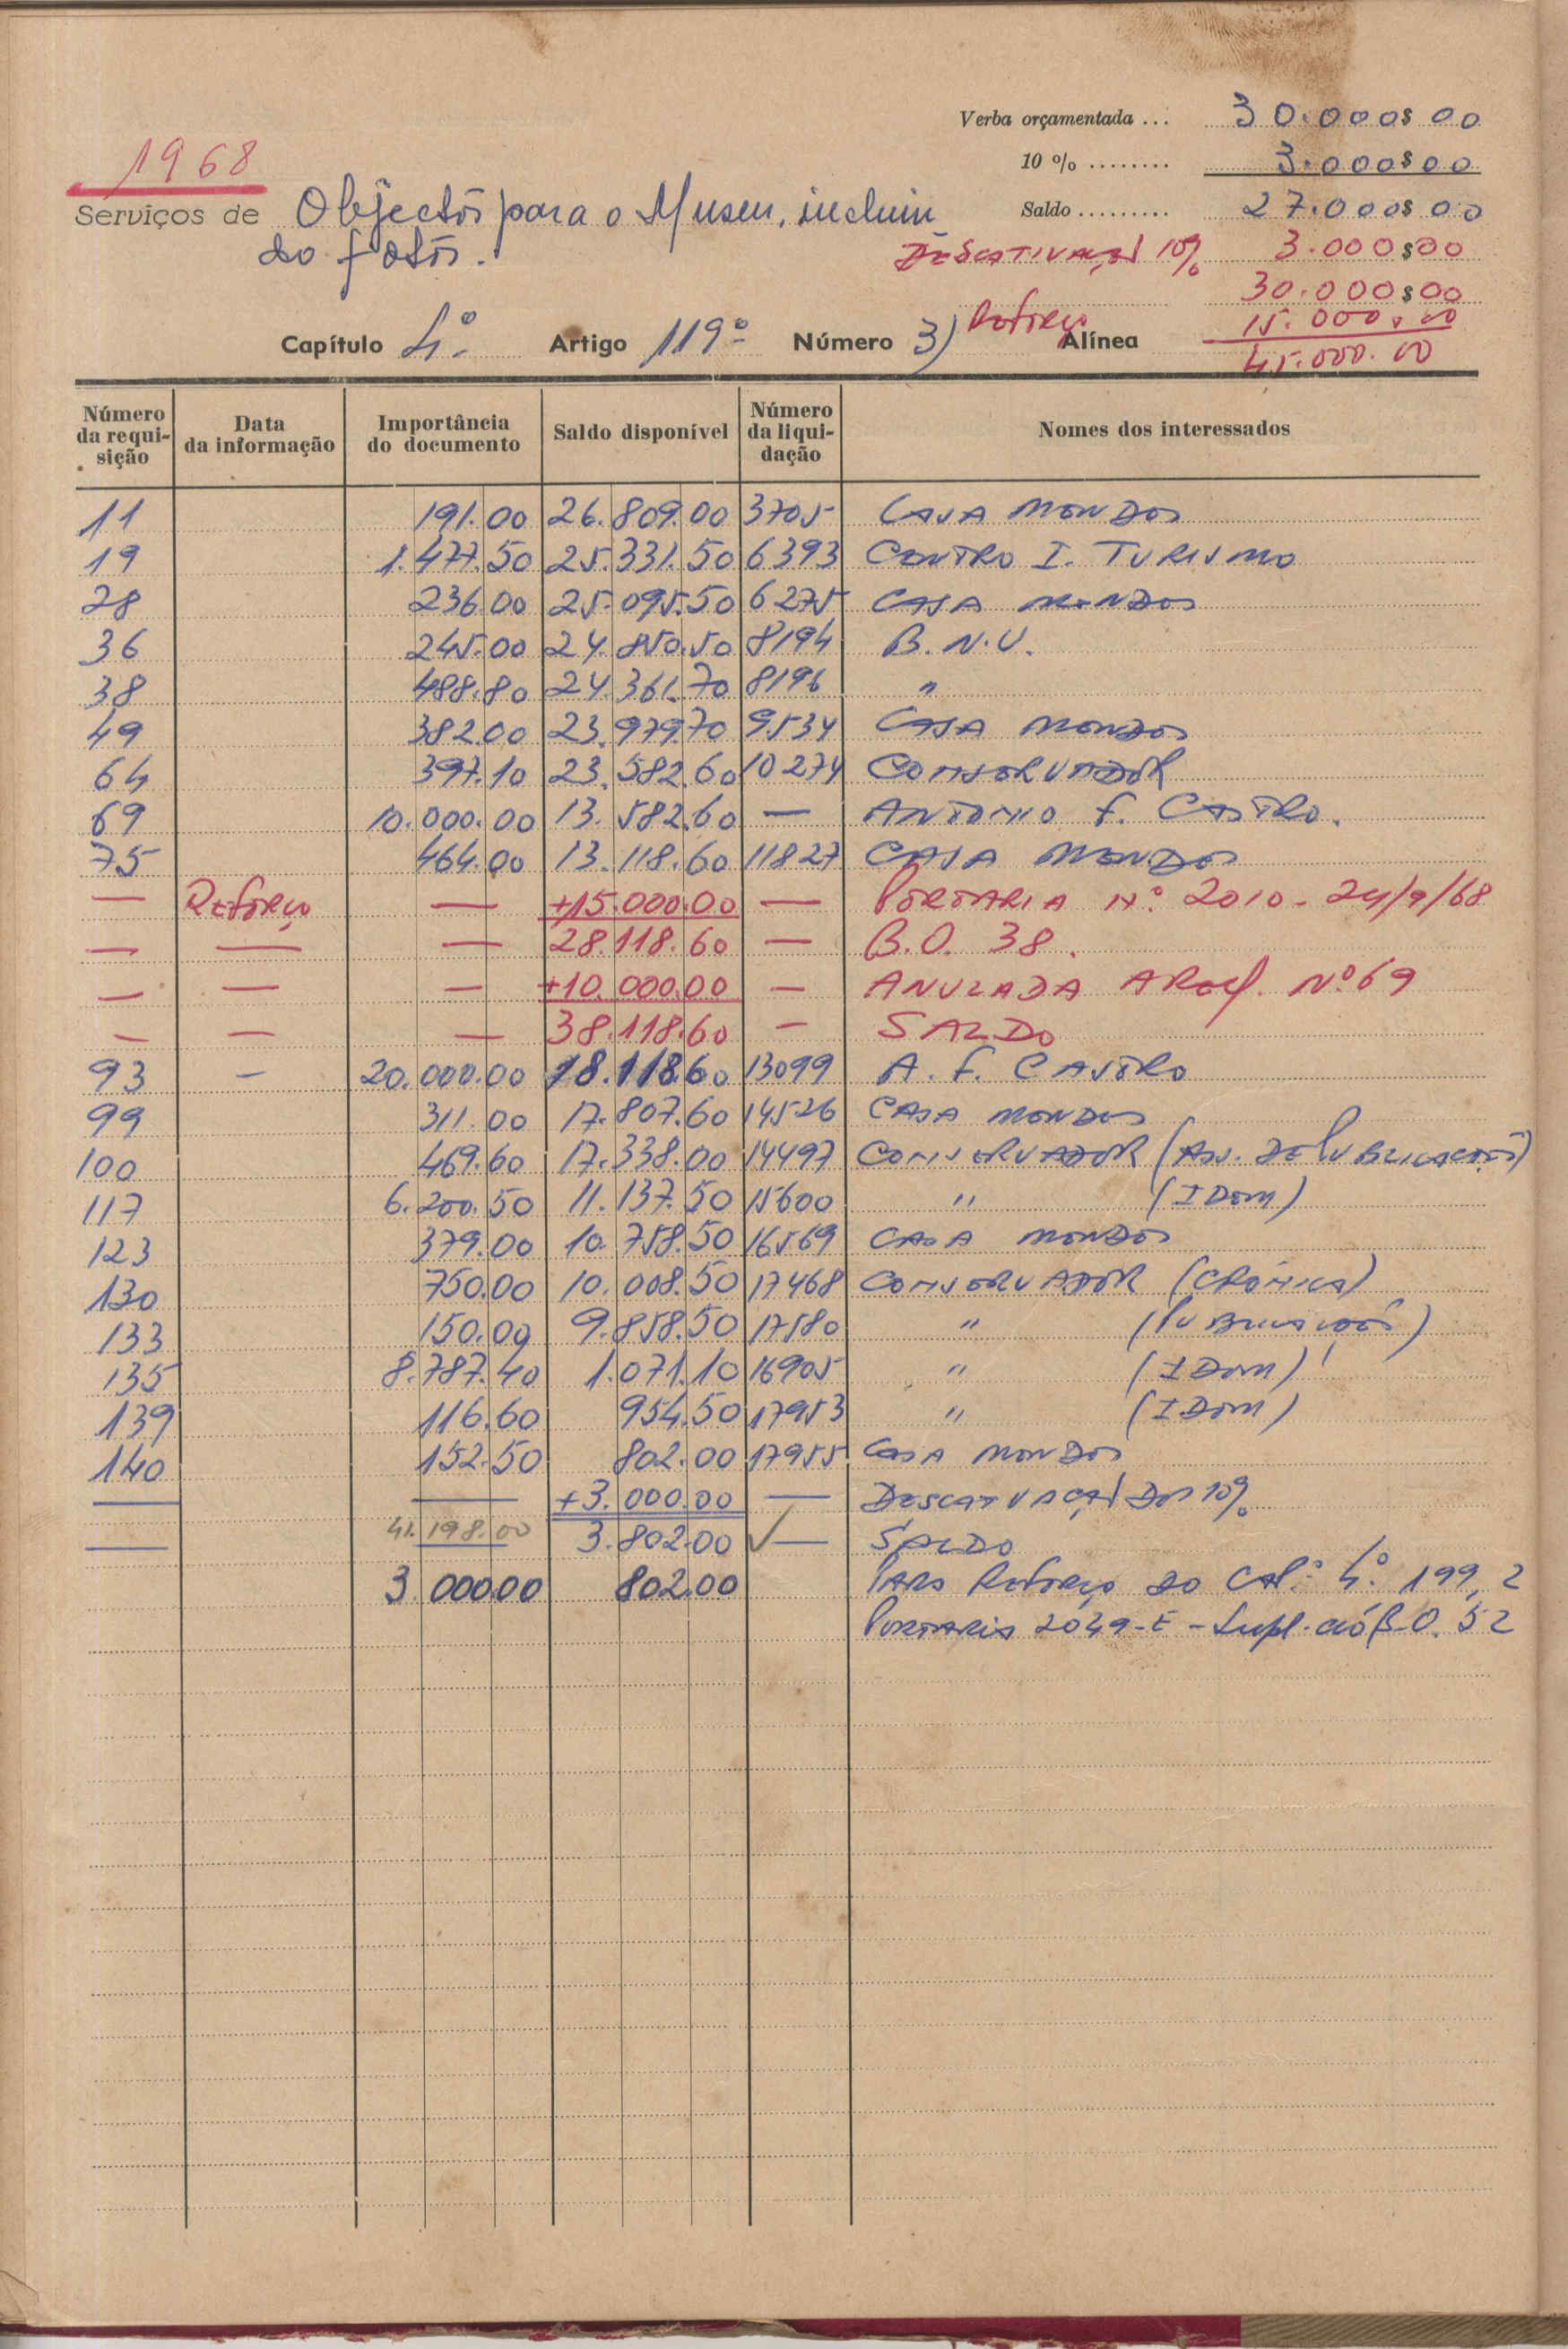 Verba orçamentada ... 30.000$00
1968
10 % ........ 3.000$00
Serviços de Objectos para o Museu, incluin
Saldo ......... 27.000$00
do fotos.
10% 3.000$00
30.000$00
Reforço 15.000.00
Capítulo 4.º Artigo 119º Número 3) Alínea
45.000.00
Número da requi-sição Data da informação Importância do documento Saldo disponível Número da liqui-dação Nomes dos interessados
11 191.00 26.809.00 3705 CASA MONDOS
19 1.477.50 25.331.50 6393 CENTRO I. TURISMO
28 236.00 25.095.50 6275 CASA MONDOS
36 245.00 24.850.50 8194 B.N.U.
38 488.80 24.361.70 8196 "
49 382.00 23.979.70 9534 CASA MONDOS
64 397.10 23.582.60 10274 CONSERVADOR
69 10.000.00 13.582.60 — ANTONIO F. CASTRO.
75 464.00 13.118.60 11827 CASA MONDOS
— Reforço — +15.000.00 — PORTARIA Nº 2010 - 24/9/68
— — — 28.118.60 — B.O. 38.
— — — +10.000.00 — ANULADA A Nº 69
— — — 38.118.60 — SALDO
93 — 20.000.00 18.118.60 13099 A. F. CASTRO
99 311.00 17.807.60 14526 CASA MONDOS
100 469.60 17.338.00 14497 CONSERVADOR (ASS. DE PUBLICACOES)
117 6.200.50 11.137.50 15600 " (IDEM)
123 379.00 10.758.50 16569 CASA MONDOS
130 750.00 10.008.50 17468 CONSERVADOR (CRÓNICA)
133 150.00 9.858.50 17580 " (PUBLICAÇOES)
135 8.787.40 1.071.10 16905 " (IDEM)
139 116.60 954.50 17953 " (IDEM)
140 152.50 802.00 17955 CASA MONDOS
— — +3.000.00 — DOS 10%
— 41.198.00 3.802.00 — SALDO
3.000.00 802.00 PARA Reforço do CAP.º 4.º 199, 2
PORTARIA 2049-E - Supl. ao B.O. 52